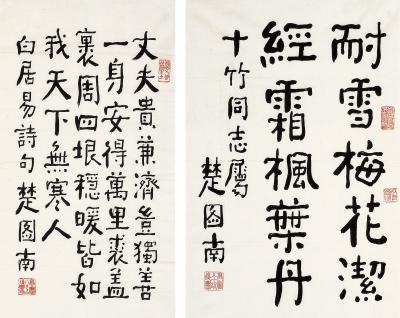 耐雪梅花潔
經霜楓葉丹
十竹同志屬
楚圖南
丈夫貴兼濟豈獨善
一身安得萬里裘蓋
裹周四垠穩暖皆如
我天下無寒人
白居易詩句楚圖南